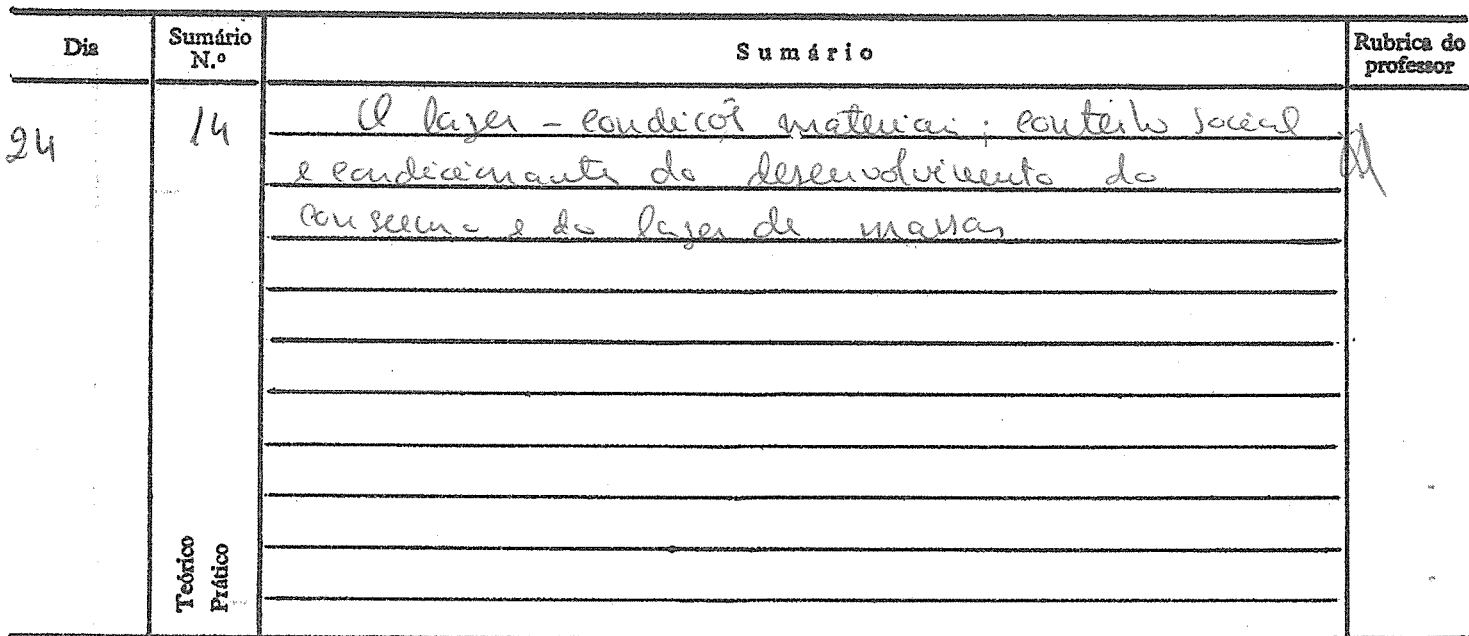 Dia
Sumário N.º
Sumário
Rubrica do professor
24
14
O lazer - condições materiais; conteúdo social
e condicionantes do desenvolvimento do
consumo e do lazer de massas
Teórico
Prático